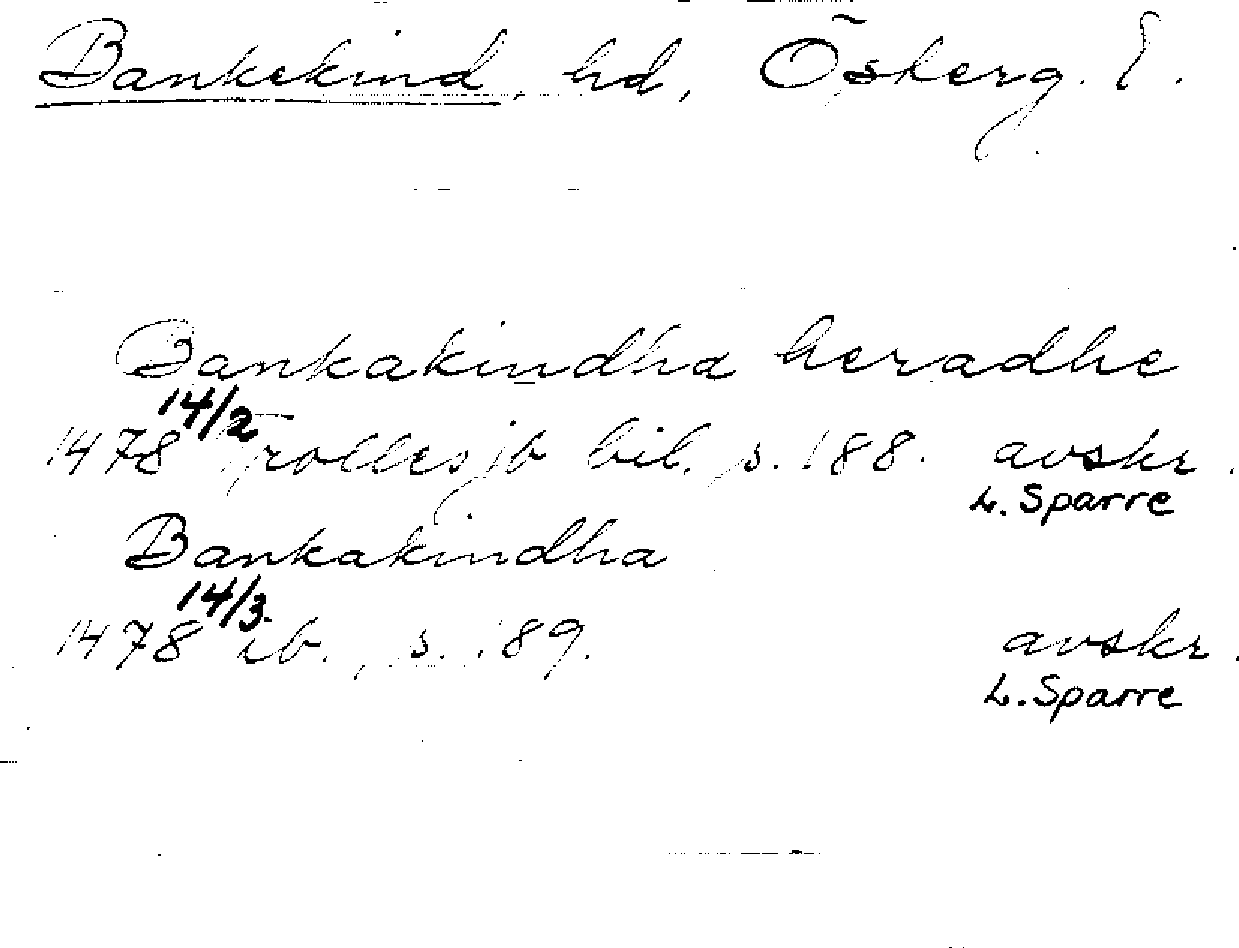 Bankekind, hd, Österg. l.
Bankakindha heradhe
14/2
1478 Trolles jb bil. s. 188. avskr.
L. Sparre
Bankakindha
14/3.
1478 ib., s. 189. avskr.
L. Sparre